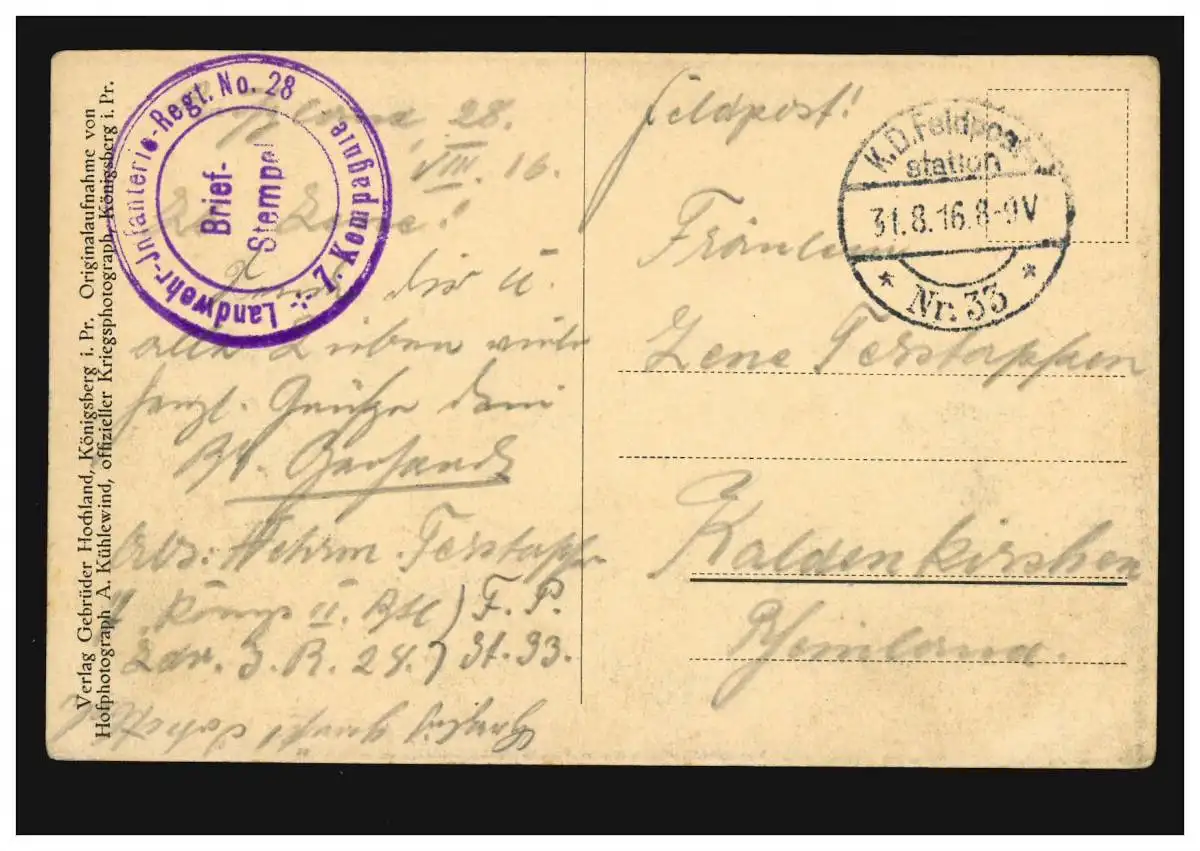 Verlag Gebrüder Hochland, Königsberg i. Pr. Originalaufnahme von
Hofphotograph A. Kühlewind, offizieller Kriegsphotograph, Königsberg i. Pr.
Landwehr-Jnfanterie-Regt. No. 28
7. Kompagnie
Brief-
Stempel
28.
VIII. 16.
Lene!
dir u.
alle Lieben viele
herzl. Grüße dein
Abs. Wehrm. Terstappen
II.
Ldw. J. R. 28. F. P.
St. 33.
Feldpost!
K.D. Feldpost
station
31.8.16.8-9V
* Nr. 33 *
Fräulein
Lene Terstappen
Kaldenkirchen
Rheinland.